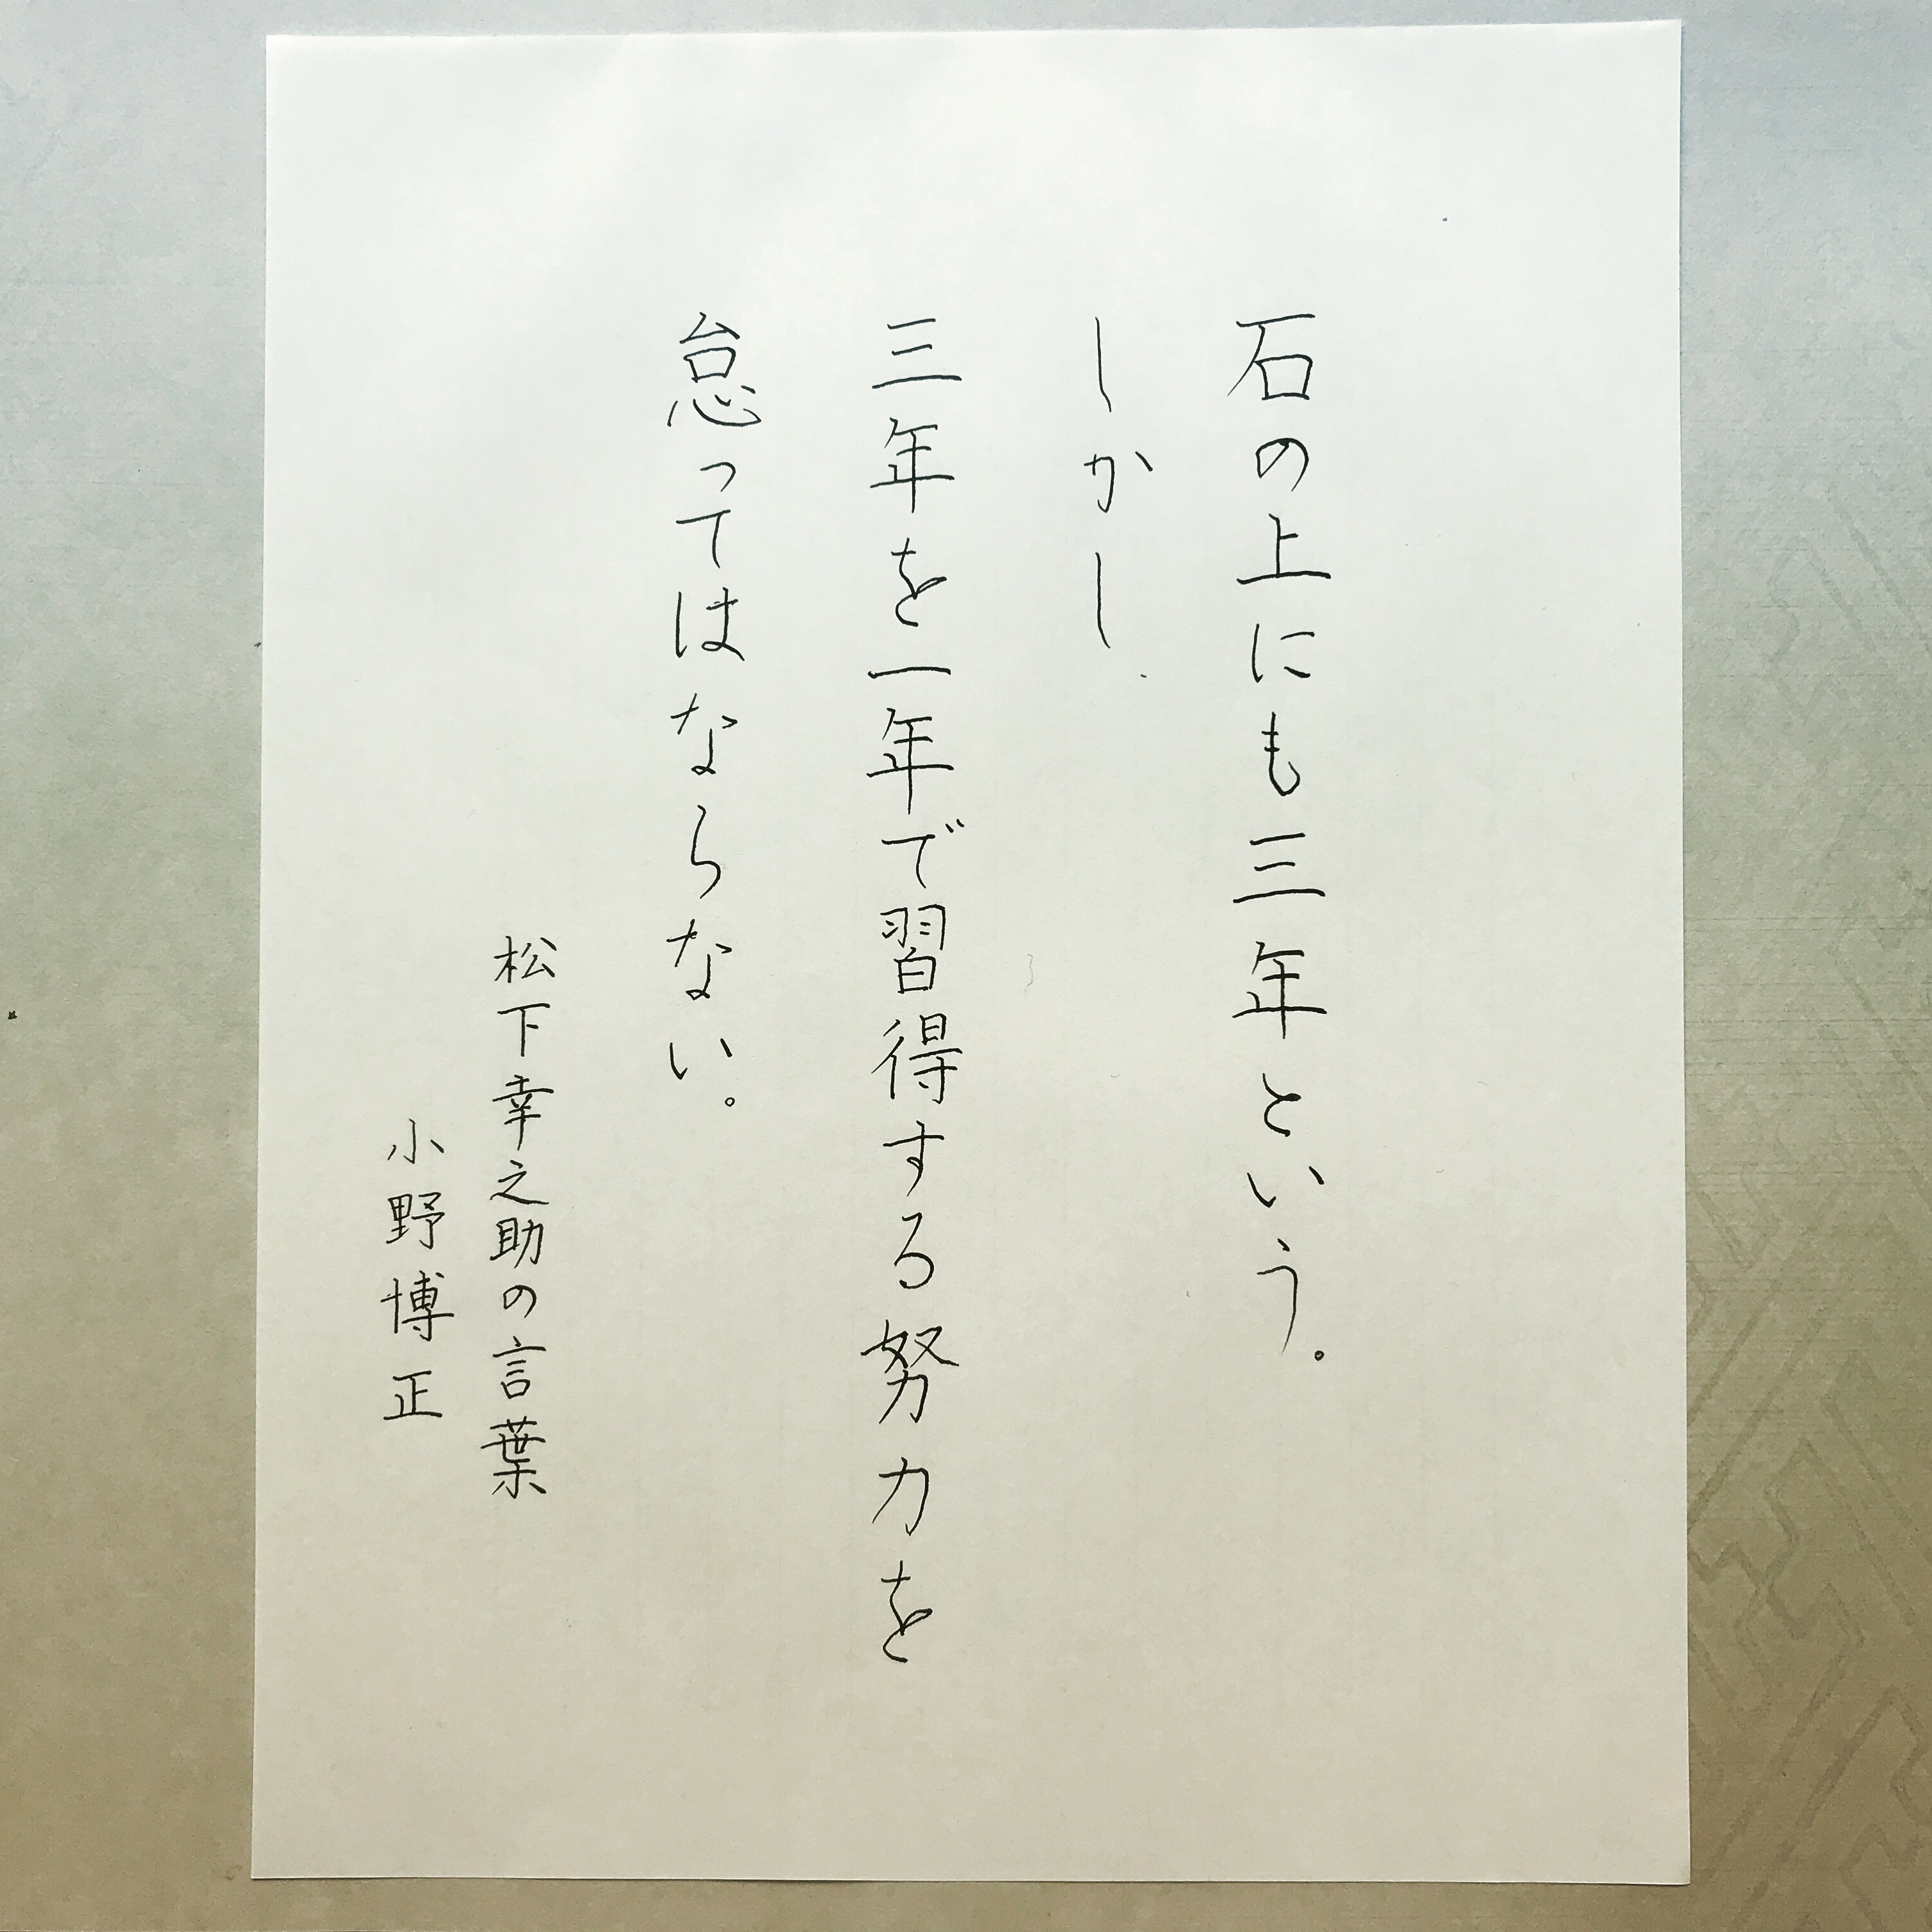 石の上にも三年という。
しかし
三年を一年で習得する努力を
怠ってはならない。
松下幸之助の言葉
小野博正